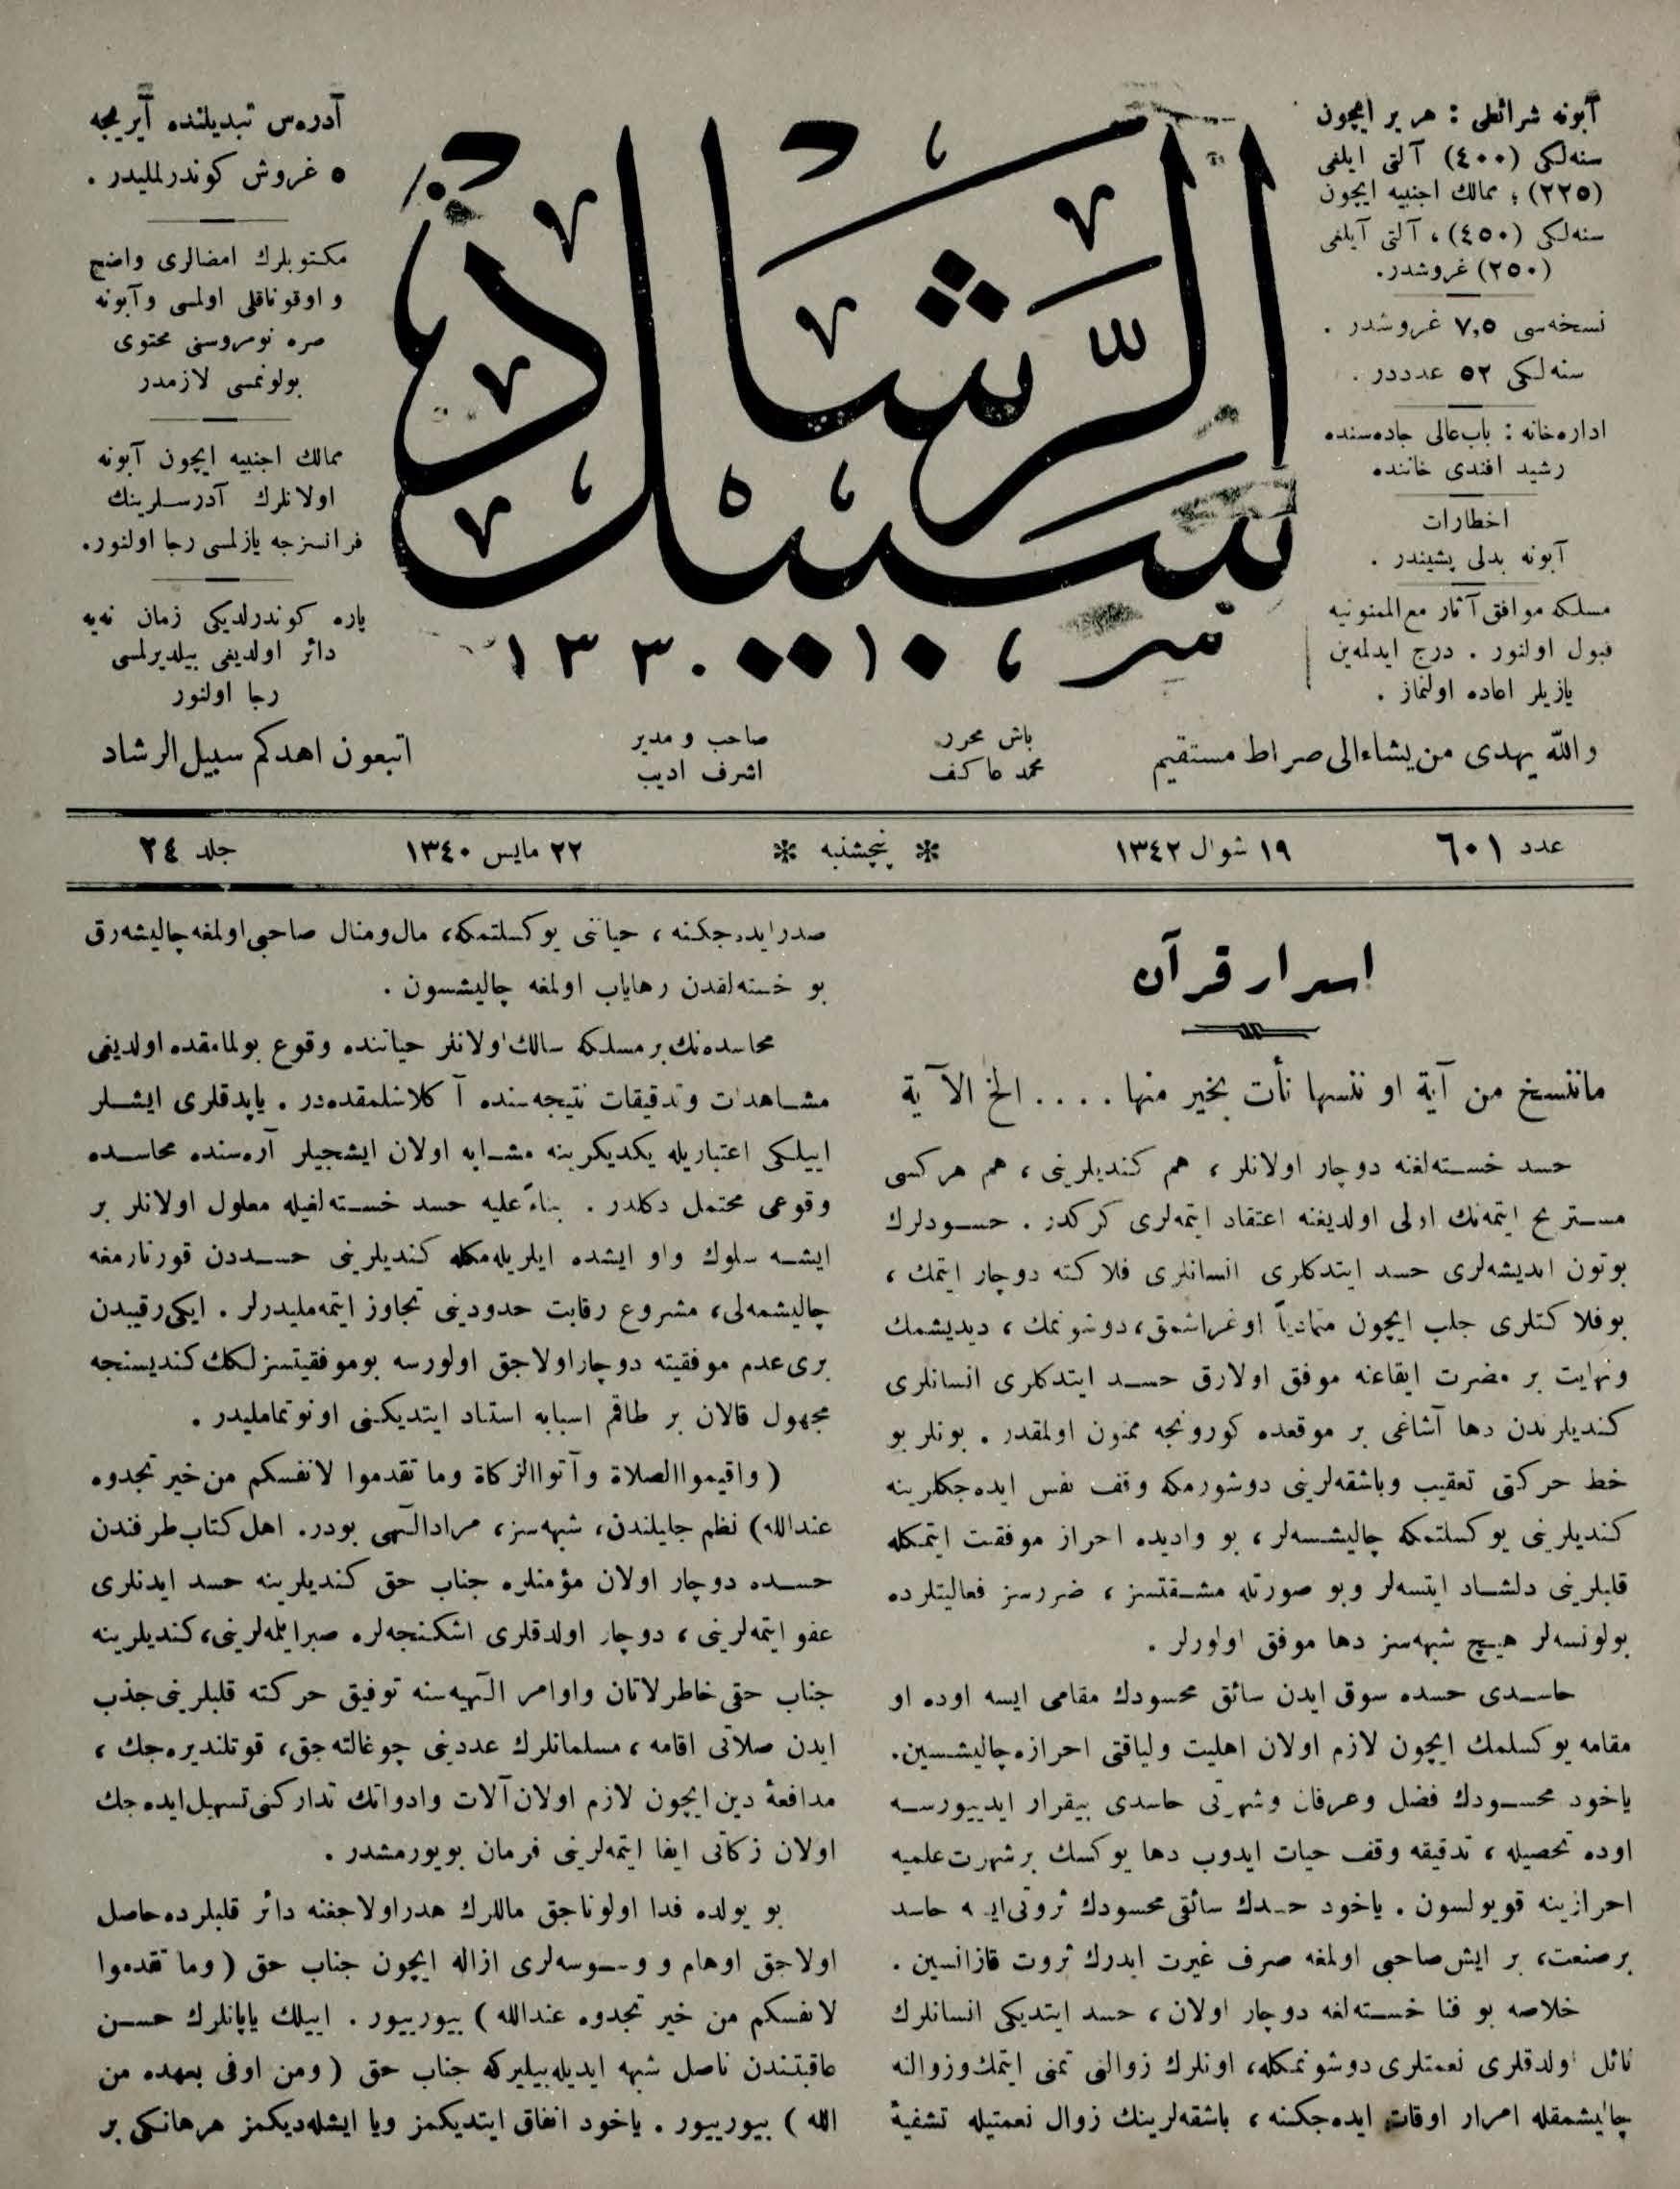 آبونه شرائطی : هر یر ایچون
سنه‌لكی (٤٠٠) آلتی ایلغی
(٢٢٥) ؛ ممالك اجنبیه ایچون
سنه‌لكی (٤٥٠) ، آلتی آیلغی
(٢٥٠) غروشدر.
نسخه‌سی ٧,٥ غروشدر .
سنه‌لكی ٥٢ عدددر .
اداره‌خانه : باب‌عالی جاده‌سنده
رشید افندی خاننده
اخطارات
آبونه بدلی پشیندر .
مسلكه موافق آثار مع‌الممنونیه
قبول اولنور . درج ایدلمه‌ین
یازیلر اعاده اولنماز .
سبیل الرشاد
١٣٣٠
آدره‌س تبدیلنده آیریجه
٥ غروش كوندرلملیدر .
مكتوبلرك امضالری واضح
و اوقوناقلی اولمسی و آبونه
صره نومروسنی محتوی
بولونمسی لازمدر
ممالك اجنبیه ایچون آبونه
اولانلرك آدرسلرینك
فرانسزجه یازلمسی رجا اولنور.
پاره كوندرلدیكی زمان نه‌یه
دائر اولدیغی بیلدیرلمسی
رجا اولنور
والله یهدی من یشاء الی صراط مستقیم
باش محرر
محمد عاكف
صاحب و مدیر
اشرف ادیب
اتبعون اهدكم سبیل الرشاد
عدد ٦٠١
١٩ شوال ١٣٤٢
پنچشنبه
٢٢ مایس ١٣٤٠
جلد ٢٤
اسرار قرآن
ماننسخ من آیة او ننسها نأت بخیر منها .... الخ الآیة
حسد خسته‌لغنه دوچار اولانلر ، هم كندیلرینی ، هم هر كسی
مستریح ایتمه‌نك اولی اولدیغنه اعتقاد ایتمه‌لری كركدر . حسودلرك
بوتون اندیشه‌لری حسد ایتدكلری انسانلری فلاكته دوچار ایتمك ،
بو فلاكتلری جلب ایچون متمادیاً اوغراشمق، دوشونمك ، دیدیشمك
ونهایت بر مضرت ایقاعنه موفق اولارق حسد ایتدكلری انسانلری
كندیلرندن دها آشاغی بر موقعده كورونجه ممنون اولمقدر . بونلر بو
خط حركتی تعقیب وباشقه‌لرینی دوشورمكه وقف نفس ایده‌جكلرینه
كندیلرینی یوكسلتمكه چالیشسه‌لر ، بو وادیده احراز موفقت ایتمكله
قلبلرینی دلشاد ایتسه‌لر وبو صورتله مشقتسز ، ضررسز فعالیتلرده
بولونسه‌لر هیچ شبهه‌سز دها موفق اولورلر .
حاسدی حسده سوق ایدن سائق محسودك مقامی ایسه اوده او
مقامه یوكسلمك ایچون لازم اولان اهلیت ولیاقتی احرازه چالیشسین.
یاخود محسودك فضل وعرفان وشهرتی حاسدی بیقرار ایدییورسه
اوده تحصیله ، تدقیقه وقف حیات ایدوب دها یوكسك بر شهرت علمیه
احرازینه قویولسون . یاخود حسدك سائقی محسودك ثروتی ایسه حاسد
بر صنعت، بر ایش صاحبی اولمغه صرف غیرت ایدرك ثروت قازانسین .
خلاصه بو فنا خسته‌لغه دوچار اولان ، حسد ایتدیكی انسانلرك
نائل اولدقلری نعمتلری دوشونمكله، اونلرك زوالنی تمنی ایتمك وزوالنه
چالیشمقله امرار اوقات ایده‌جكنه ، باشقه‌لرینك زوال نعمتیله تشفیۀ
صدر ایده‌جكنه ، حیاتنی یوكسلتمكه، مال ومنال صاحبی اولمغه چالیشه‌رق
بو خسته‌لقدن رهایاب اولمغه چالیشسون .
محاسده‌نك بر مسلكه سالك اولانلر حیاتنده وقوع بولمامقده اولدیغی
مشاهدات وتدقیقات نتیجه‌سنده آكلاشلمقده‌در . یاپدقلری ایشلر
اییلكی اعتباریله یكدیكرینه مشابه اولان ایشجیلر آره‌سنده محاسده
وقوعی محتمل دكلدر . بناءً علیه حسد خسته‌لغیله معلول اولانلر بر
ایشه سلوك واو ایشده ایلریله‌مكله كندیلرینی حسددن قورتارمغه
چالیشمه‌لی، مشروع رقابت حدودینی تجاوز ایتمه‌ملیدرلر . ایكی رقیبدن
بری عدم موفقیته دوچار اولاجق اولورسه بو موفقیتسزلكك كندیسنجه
مجهول قالان بر طاقم اسبابه استناد ایتدیكنی اونوتماملیدر .
(واقیموا الصلاة وآتوا الزكاة وما تقدموا لانفسكم من خیر تجدوه
عندالله) نظم جلیلندن، شبهه‌سز، مراد الٓهی بودر. اهل كتاب طرفندن
حسده دوچار اولان مؤمنلره جناب حق كندیلرینه حسد ایدنلری
عفو ایتمه‌لرینی ، دوچار اولدقلری اشكنجه‌لره صبر ایلمه‌لرینی، كندیلرینه
جناب حقی خاطرلاتان واوامر الٓهیه‌سنه توفیق حركته قلبلرینی جذب
ایدن صلاتی اقامه ، مسلمانلرك عددینی چوغالته‌جق، قوتلندیره‌جك ،
مدافعۀ دین ایچون لازم اولان آلات وادواتك تداركنی تسهیل ایده‌جك
اولان زكاتی ایفا ایتمه‌لرینی فرمان بویورمشدر .
بو یولده فدا اولوناجق ماللرك هدر اولاجغنه دائر قلبلرده حاصل
اولاجق اوهام و وسوسه‌لری ازاله ایچون جناب حق (وما تقدموا
لانفسكم من خیر تجدوه عندالله) بیورییور . اییلك یاپانلرك حسن
عاقبتندن ناصل شبهه ایدیله‌بیلیركه جناب حق (ومن اوفی بعهده من
الله) بیورییور . یاخود انفاق ایتدیكمز ویا ایشله‌دیكمز هر هانكی بر